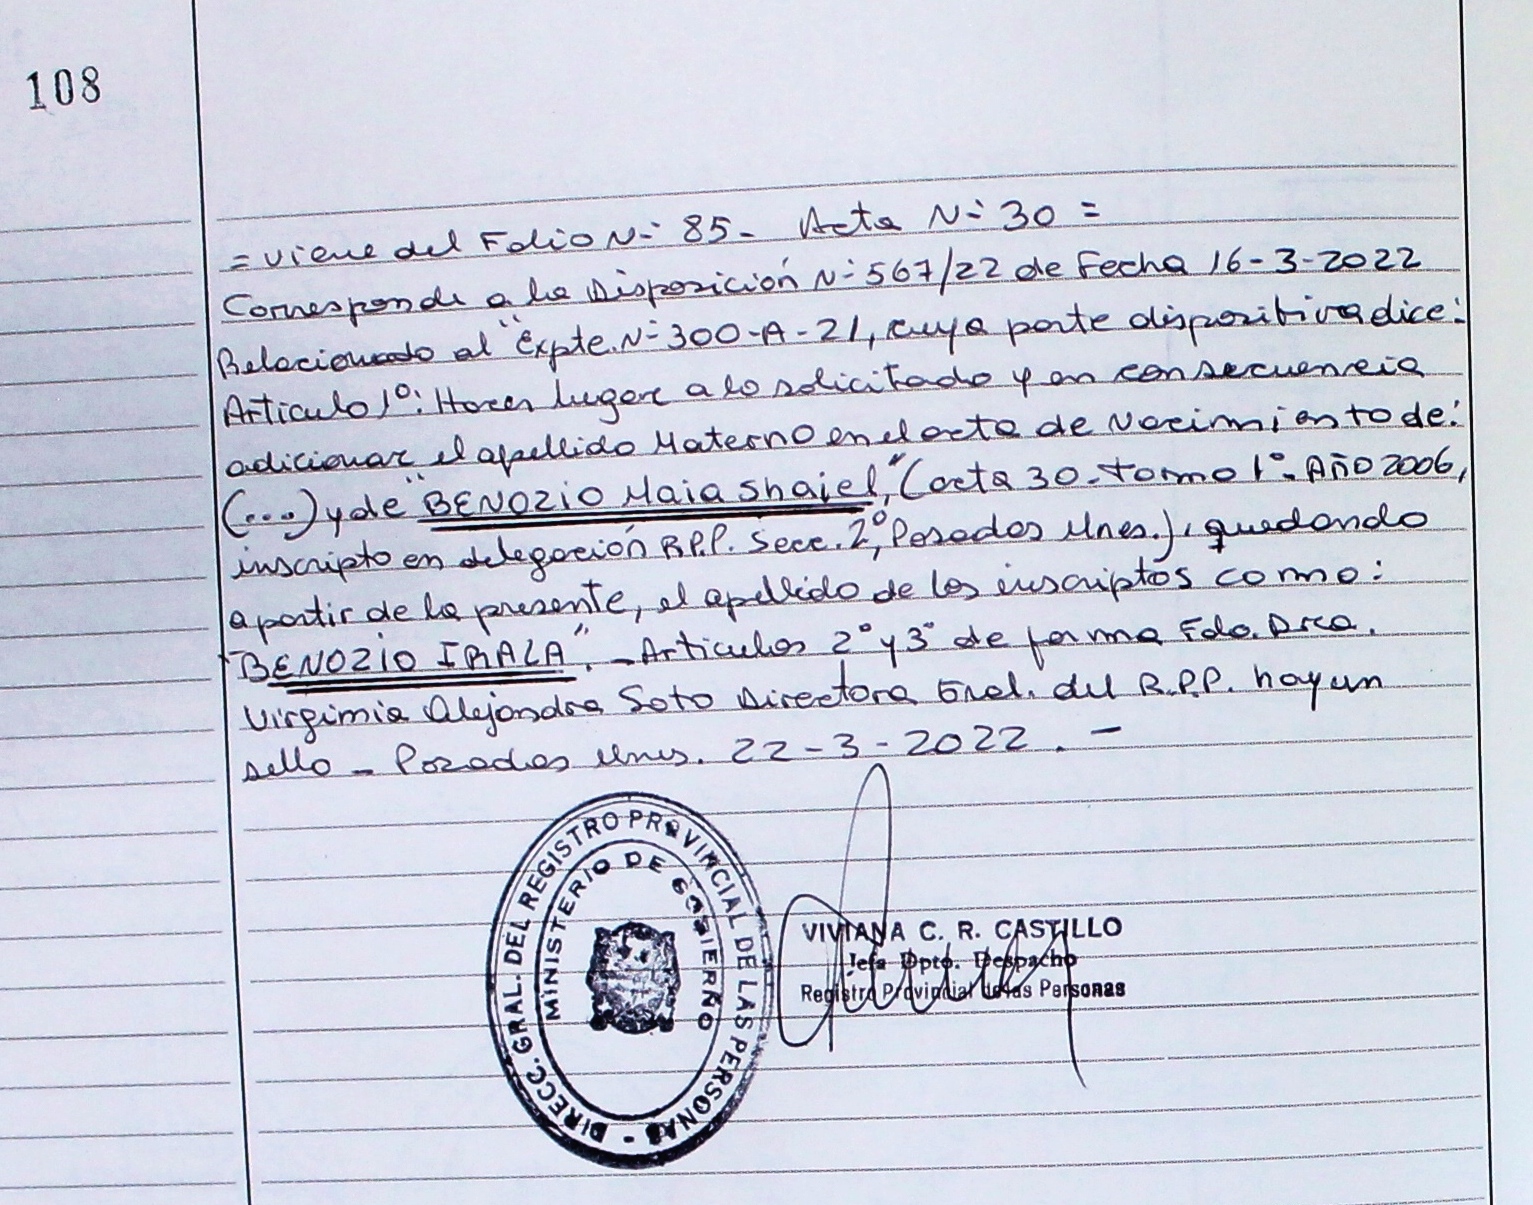 108
= viene del Folio N° 85 - Acta N° 30 =
Corresponde a la Disposición N° 567/22 de Fecha 16-3-2022
Relacionado al "Expte. N° 300-A-21, cuya parte dispositiva dice:
Artículo 1°: Hacer lugar a lo solicitado y en consecuencia
adicionar el apellido Materno en el acta de Nacimiento de:
(...) y de "BENOZIO Maia Shaiel", (acta 30 - tomo 1° - Año 2006,
inscripto en delegación R.P.P. Secc. 2°, Posadas Mnes.), quedando
a partir de la presente, el apellido de los inscriptos como:
"BENOZIO IRALA". - Articulos 2° y 3° de forma Fdo. Dra.
Virginia Alejandra Soto Directora Gral. del R.P.P. hay un
sello - Posadas Mnes. 22-3-2022. -
DIRECC. GRAL. DEL REGISTRO PROVINCIAL DE LAS PERSONAS -
MINISTERIO DE GOBIERNO
VIVIANA C. R. CASTILLO
Jefa Dpto. Despacho
Registro Provincial de las Personas